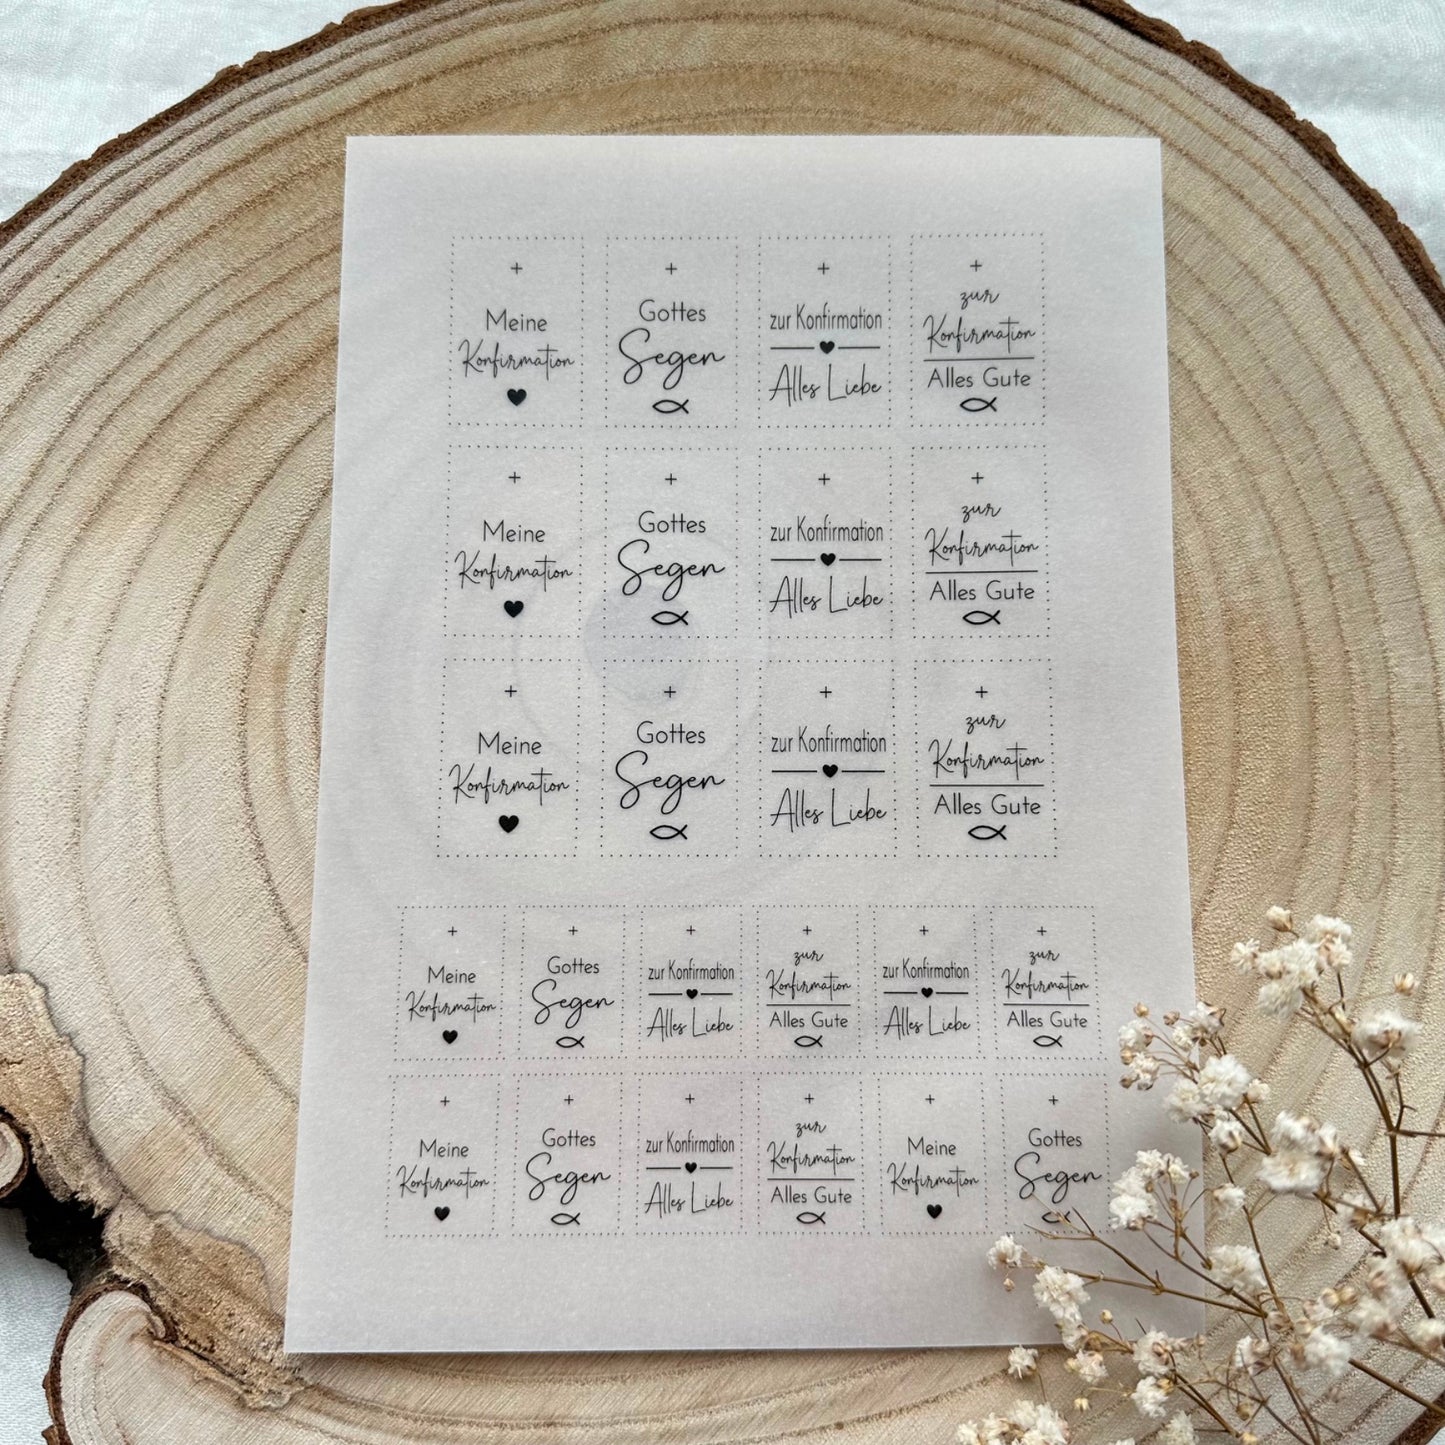 Meine
Konfirmation
Gottes
Segen
zur Konfirmation
Alles Liebe
zur
Konfirmation
Alles Gute
Meine
Konfirmation
Gottes
Segen
zur Konfirmation
Alles Liebe
zur
Konfirmation
Alles Gute
Meine
Konfirmation
Gottes
Segen
zur Konfirmation
Alles Liebe
zur
Konfirmation
Alles Gute
Meine
Konfirmation
Gottes
Segen
zur Konfirmation
Alles Liebe
zur
Konfirmation
Alles Gute
zur Konfirmation
Alles Liebe
zur
Konfirmation
Alles Gute
Meine
Konfirmation
Gottes
Segen
zur Konfirmation
Alles Liebe
zur
Konfirmation
Alles Gute
Meine
Konfirmation
Gottes
Segen